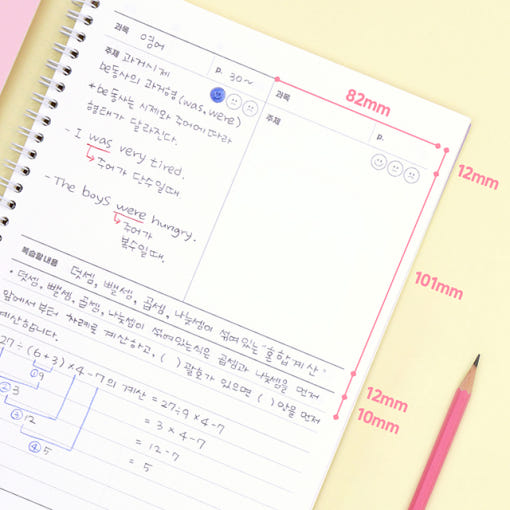 과목 영어
주제 과거시제
p. 30~
be동사의 과거형 (was, were)
* be동사는 시제와 주어에 따라
형태가 달라진다.
- I was very tired.
주어가 단수일때
- The boys were hungry.
주어가
복수일때.
과목
주제
p.
82mm
12mm
101mm
12mm
10mm
복습할 내용 덧셈, 뺄셈, 곱셈, 나눗셈이 섞여 있는 "혼합계산"
• 덧셈, 뺄셈, 곱셈, 나눗셈이 섞여있는식은 곱셈과 나눗셈을 먼저
앞에서 부터 차례로 계산하고, ( ) 괄호가 있으면 ( ) 안을 먼저
계산합니다.
27÷(6+3)×4-7의 계산 = 27÷9×4-7
= 3×4-7
= 12-7
= 5
①9
②3
③12
④5